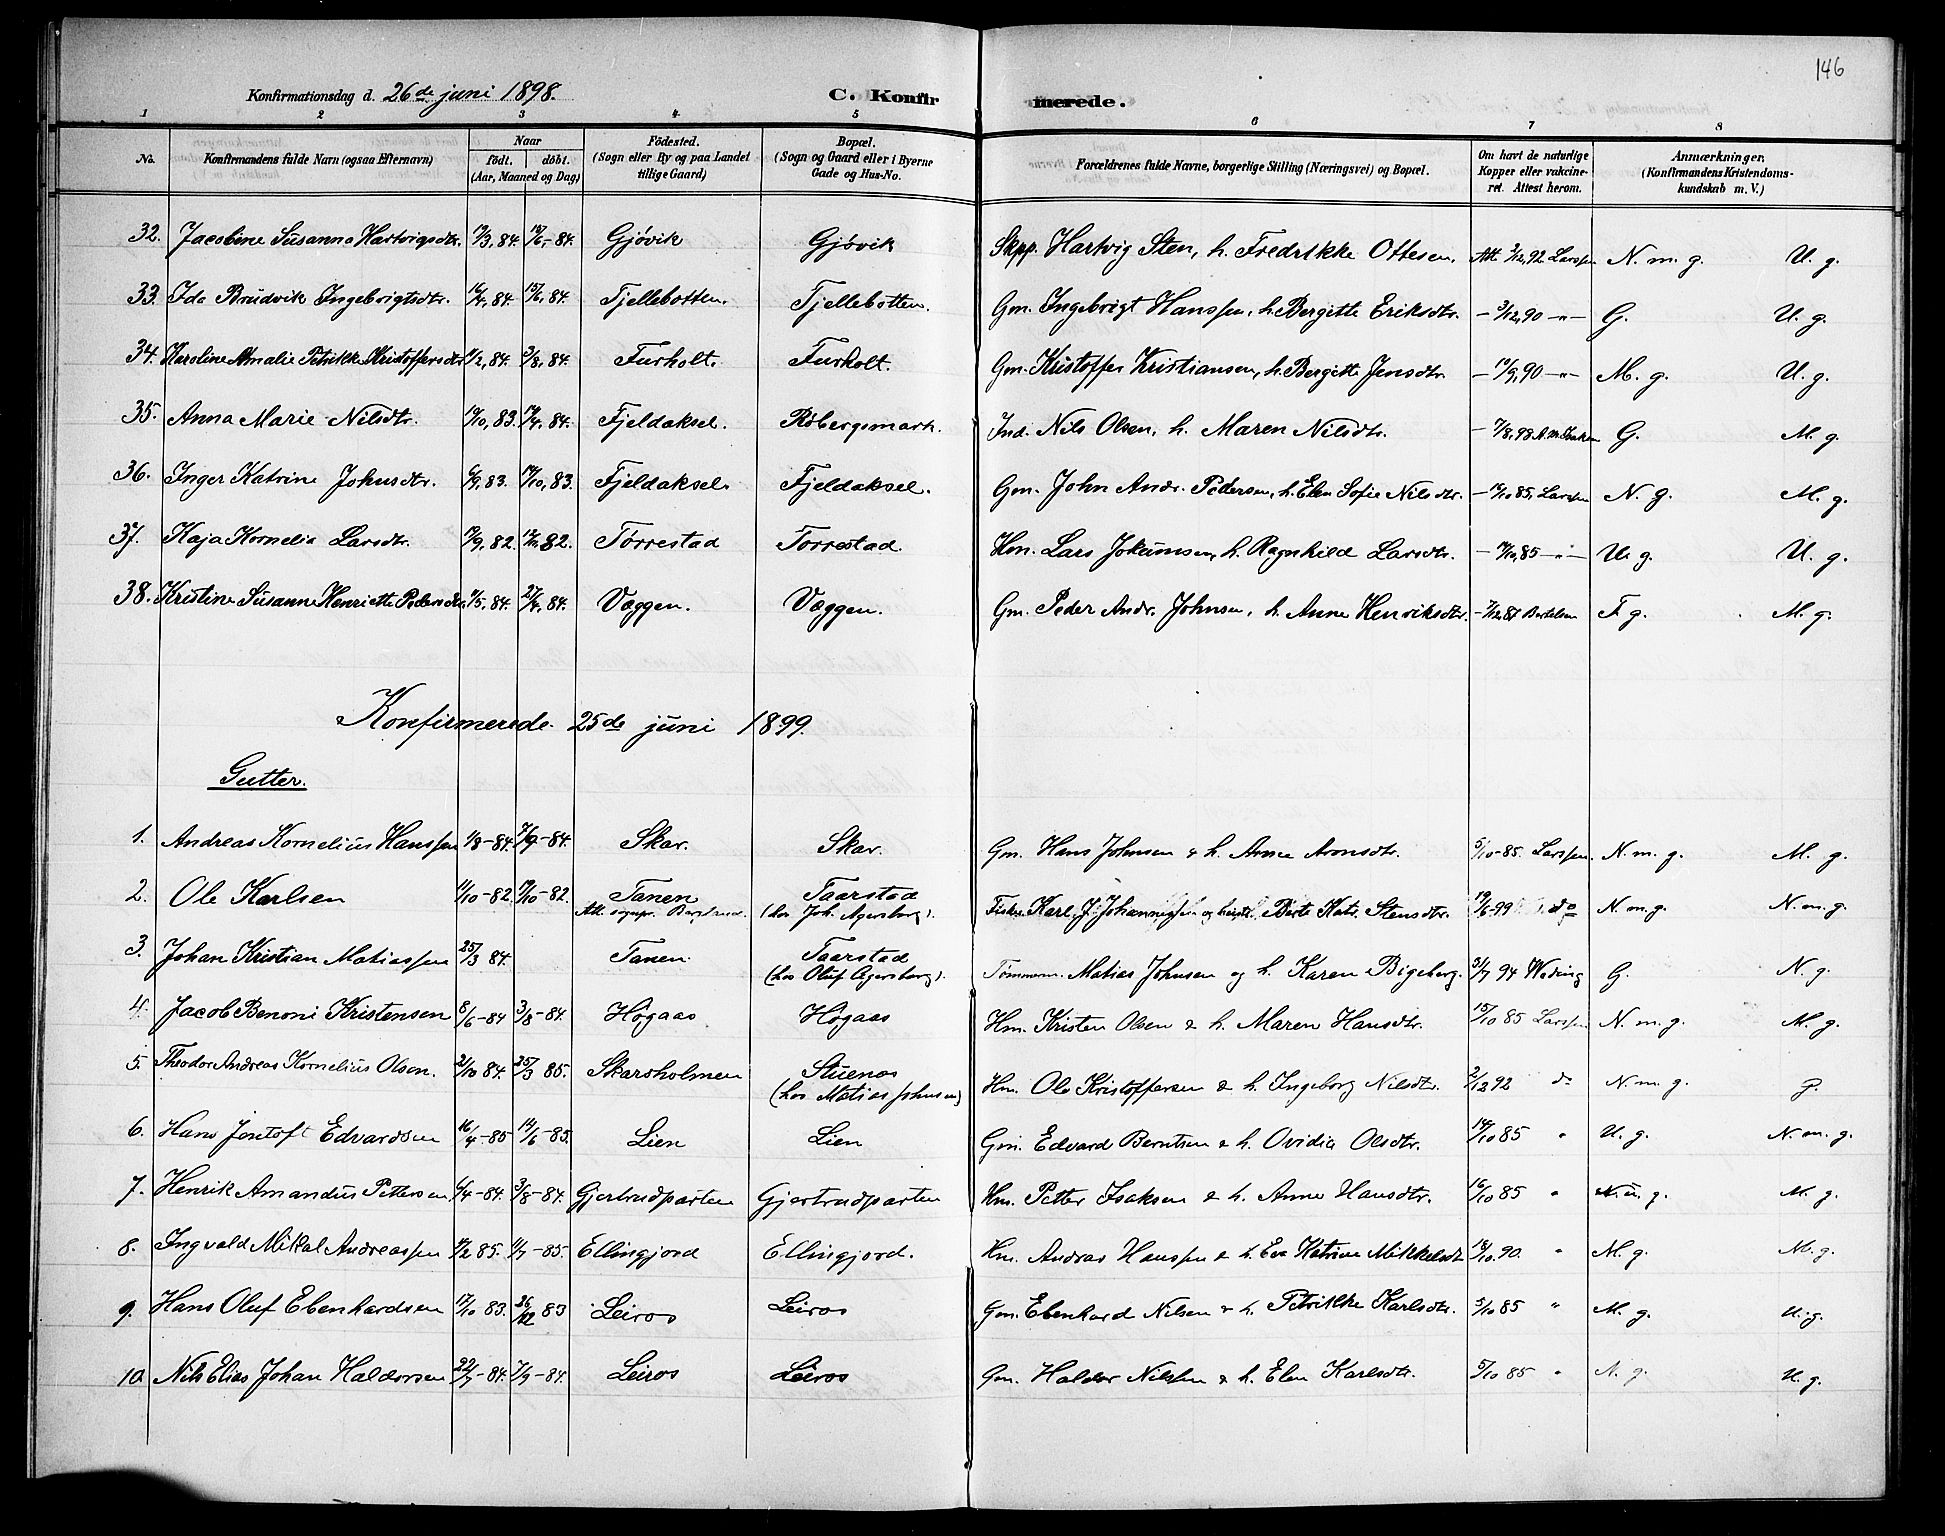 146
Konfirmationsdag d. 26de juni 1898. C. Konfirmerede.
1 2 3 4 5 6 7 8
No. Konfirmandens fulde Navn (ogsaa Efternavn) Naar født. døbt. (Aar, Maaned og Dag) Fødested. (Sogn eller By og paa Landet tillige Gaard) Bopæl. (Sogn og Gaard eller i Byerne Gade og Hus-No. Forældrenes fulde Navne, borgerlige Stilling (Næringsvei) og Bopæl. Om havt de naturlige Kopper eller vakcineret. Attest herom. Anmærkninger. (Konfirmandens Kristendomskundskab m. V.)
32. Jacobine Susanna Hartvigsdtr. Gjøvik Gjøvik Skpp. Hartvig Sten, h. Fredrikke Ottesen, Att. 2/12, 92 Larssen N. m. g. U. g.
33. Ida Brudvik Ingebrigtsdtr. 16/4, 84. 15/6, 84. Fjellebotten. Fjellebotten. Gm. Ingebrigt Hanssen, h. Bergitte Eriksdtr. - 3/12, 90 -"- G. U. g.
34. Karoline Amalie Petrikke Kristoffersdtr. 11/2, 84. 3/8, 84. Furholt. Furholt. Gm. Kristoffer Kristiansen, h. Bergitte Jensdtr. - 10/9, 90 -"- M. g. U. g.
35. Anna Marie Nilsdtr. 19/10, 83. 14/4, 84. Fjeldaksel. Røbergsmark. Ind. Nils Olsen, h. Maren Nilsdtr. - 7/8, 98 G. M. g.
36. Inger Katrine Johnsdtr. 6/9, 83. 14/10, 83. Fjeldaksel. Fjeldaksel. Gm. John Andr. Pedersen, h. Elen Sofie Nilsdtr. - 14/10 85, Larssen N. g. M. g.
37. Kaja Kornelia Larsdtr. 17/9, 82. 12/11 82. Torrestad Torrestad. Hm. Lars Jokumsen, h. Ragnhild Larsdtr. - 14/10, 85 -"- U. g. U. g.
38. Kristine Susanne Henriette Pedersdtr. 9/5, 84. 27/4, 84. Væggen. Væggen. Gm. Peder Andr. Johnsen, h. Anne Henriksdtr. - 7/12, 87 Bertelsen T. g. M. g.
Konfirmerede 25de juni 1899.
Gutter.
1. Andreas Kornelius Hanssen 1/8-84. 7/9-84. Skar. Skar. Gm. Hans Johnsen & h. Anne Aronsdtr. 5/10-85. Larssen. N. m. g. M. g.
2. Ole Karlsen 11/10-82. 19/10-82. Tanen Taarstad Fisker Karl J. Johannessen og Berte Katr. Stensdtr. 19/6-99 do N. m. g. N. m. g.
Att. sognpr. (hos Joh. Agersborg).
3. Johan Kristian Matiassen 25/3 84. Tanen. Taarstad Tømmerm. Matias Johnsen og h. Karen Bigeborg. 31/7 94 Weding G. N. g.
(hos Oluf Agersborg).
4. Jacob Benoni Kristensen 8/6-84 3/8-84. Høgaas Høgaas Hm. Kristen Olsen & h. Maren Hansdtr. 15/10 85 Larssen N. m. g. M. g.
5. Theodor Andreas Kornelius Olsen. 21/10 84. 25/3 85. Skarsholmen Stuenes Hm. Ole Kristoffersen & h. Ingeborg Nilsdtr. 2/12 92 do N. m. g. g.
(hos Matias Johnsen)
6. Hans Jentoft Edvardsen 16/4-85 14/6-85. Lien Lien Gm. Edvard Berntsen & h. Ovidia Olsdtr. 14/10 85 " U. g. N. m. g.
7. Henrik Amandus Pettersen 6/4-84. 3/8-84. Gjertrudparten Gjertrudparten Hm. Petter Isaksen & h. Anne Hansdtr. 16/10 85 " M. g.
8. Ingvald Mikal Andreassen 17/2 85. 11/7-85. Ellingjord Ellingjord. Hm. Andreas Hanssen & h. Eva Katrine Mikkelsdtr. 18/10. 90. " M. g. M. g.
9. Hans Oluf Ebenhardsen 17/10 83. 26/12 83 Leiros Leiros Gm. Ebenhard Nilsen & h. Petrikke Karlsdtr. 5/10 85 " M. g. U. g.
10. Nils Elias Johan Haldorsen 22/7-84. 7/9-84. Leiros Leiros Gm. Haldor Nilsen & h. Elen Karlsdtr. 5/10 85 " N. g. U. g.